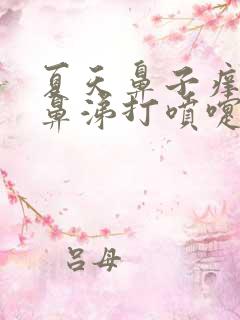 夏天鼻子痒
鼻涕打喷嚏
吕母